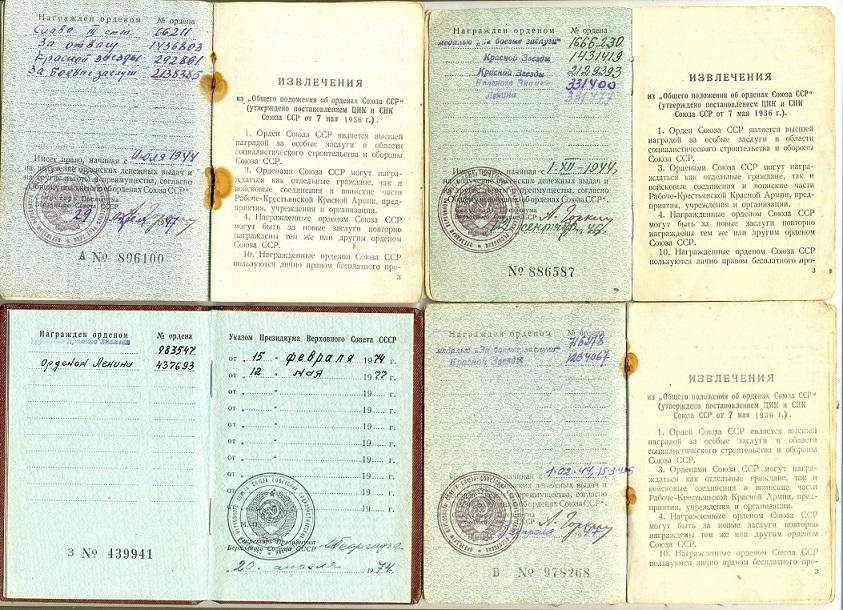 Награжден орденом № ордена
Слава III степ. 66211
За отвагу 1436803
Красной звезды 292861
За боевые заслуг 2138385
Имеет право, начиная с Июля 1944
на получение орденских денежных выдач и
на другие льготы и преимущества, согласно
„Общему положению об орденах Союза ССР“.
29 апреля 47
А № 896100
ИЗВЛЕЧЕНИЯ
из „Общего положения об орденах Союза ССР“
(утверждено постановлением ЦИК и СНК
Союза ССР от 7 мая 1936 г.).
1. Орден Союза ССР является высшей
наградой за особые заслуги в области
социалистического строительства и обороны
Союза ССР.
3. Орденами Союза ССР могут награж-
даться как отдельные граждане, так и
войсковые соединения и воинские части
Рабоче-Крестьянской Красной Армии, пред-
приятия, учреждения и организации.
4. Награжденные орденом Союза ССР
могут быть за новые заслуги повторно
награждены тем же или другим орденом
Союза ССР.
10. Награжденные орденом Союза ССР
пользуются лично правом бесплатного про-
3
Награжден орденом № ордена
медалью „За боевые заслуги“ 1666230
Красной Звезды 1431419
Красной Звезды 2129393
Красного Знамени 331400
Ленина
Имеет право, начиная с 1-XII-1944,
на получение орденских денежных выдач и
на другие льготы и преимущества, согласно
„Общему положению об орденах Союза ССР“.
А. Горкин
сентяб 1946
№ 886587
ИЗВЛЕЧЕНИЯ
из „Общего положения об орденах Союза ССР“
(утверждено постановлением ЦИК и СНК
Союза ССР от 7 мая 1936 г.).
1. Орден Союза ССР является высшей
наградой за особые заслуги в области
социалистического строительства и обороны
Союза ССР.
3. Орденами Союза ССР могут награ-
ждаться как отдельные граждане, так и
войсковые соединения и воинские части
Рабоче-Крестьянской Красной Армии, пред-
приятия, учреждения и организации.
4. Награжденные орденом Союза ССР
могут быть за новые заслуги повторно
награждены тем же или другим орденом
Союза ССР.
10. Награжденные орденом Союза ССР
пользуются лично правом бесплатного про-
3
Награжден орденом № ордена
Трудового Красного Знамени 983547
Орденом Ленина 437693
З № 439941
Указом Президиума Верховного Совета СССР
от „15“ февраля 1974 г.
от „12“ мая 1977 г.
от 19 г.
от 19 г.
от 19 г.
от 19 г.
от 19 г.
от 19 г.
от 19 г.
М.П.
Секретарь Президиума
Верховного Совета СССР
20 апреля 1974 г.
Награжден орденом № ордена
медалью „За боевые заслуги“ 716278
Красной Звезды 1234067
начиная с 1.02.44,
орденских денежных выдач и
преимущества, согласно
об орденах Союза ССР“.
А. Горкин
В № 978268
ИЗВЛЕЧЕНИЯ
из „Общего положения об орденах Союза ССР“
(утверждено постановлением ЦИК и СНК
Союза ССР от 7 мая 1936 г.).
1. Орден Союза ССР является высшей
наградой за особые заслуги в области
социалистического строительства и обороны
Союза ССР.
3. Орденами Союза ССР могут награ-
ждаться как отдельные граждане, так и
войсковые соединения и воинские части
Рабоче-Крестьянской Красной Армии, пред-
приятия, учреждения и организации.
4. Награжденные орденом Союза ССР
могут быть за новые заслуги повторно
награждены тем же или другим орденом
Союза ССР.
10. Награжденные орденом Союза ССР
пользуются лично правом бесплатного про-
3